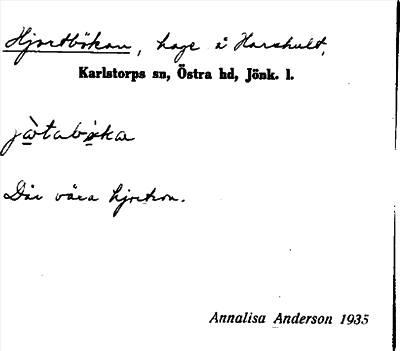 Hjortbökan, hage å Harshult,
Karlstorps sn, Östra hd, Jönk. l.
jòtaböka
Där växa hjortron.
Annalisa Anderson 1935